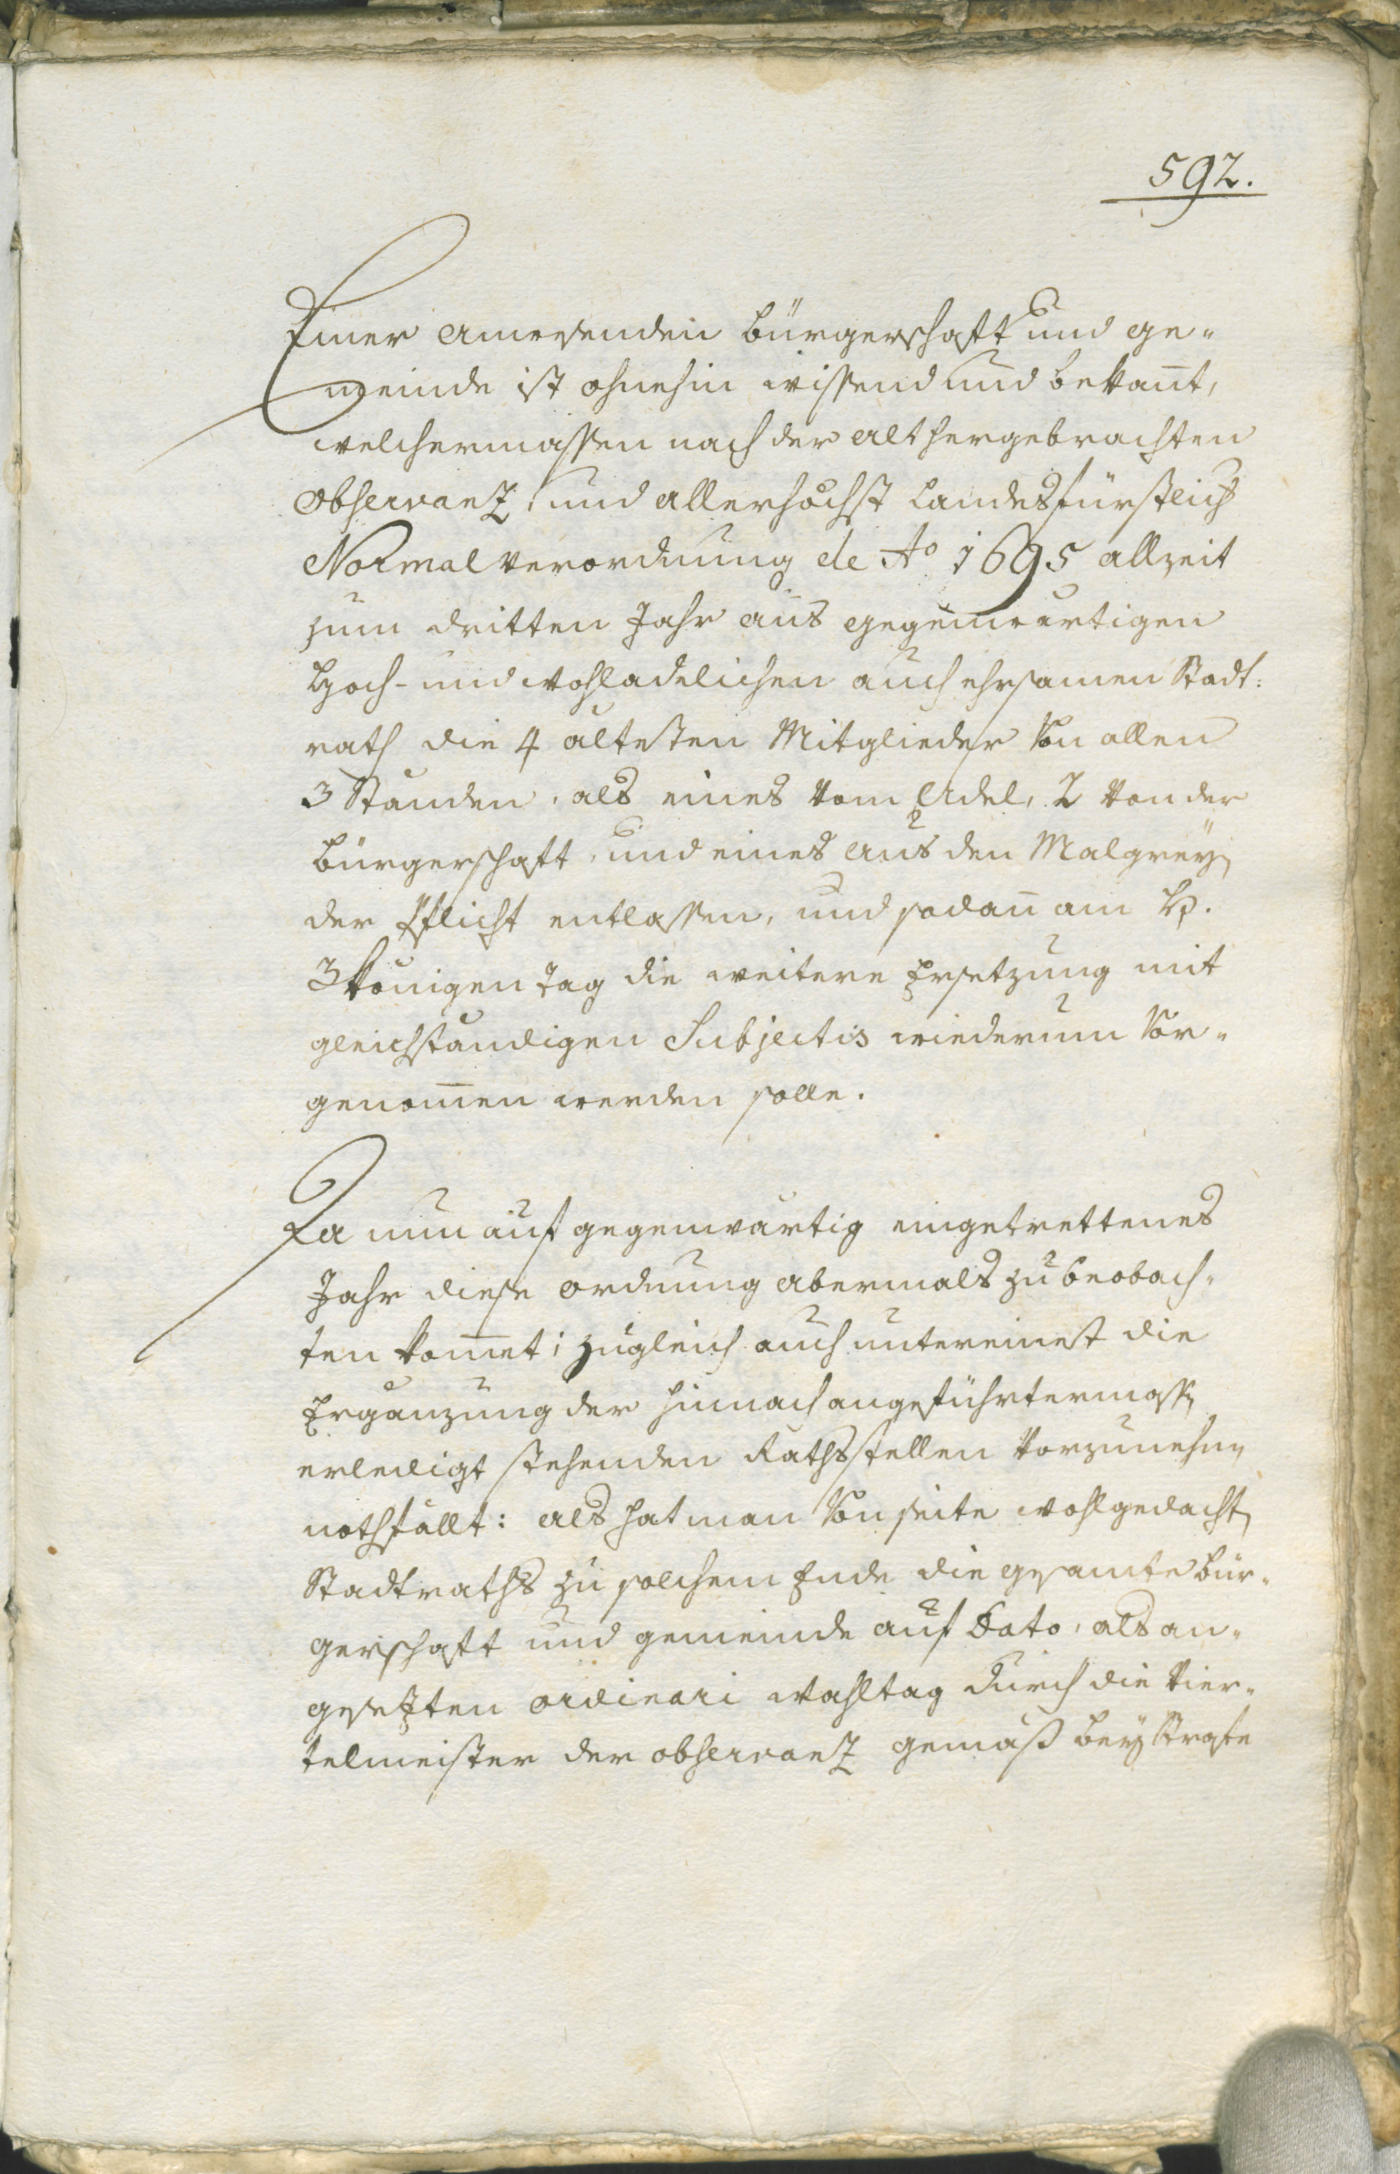 592.
Einer anwesenden Bürgerschaft und ge-
meinde ist ohnehin wissend und bekañt,
welchermassen nach der althergebrachten
Observanz, und allerhöchst Landesfürstlich
Normalverordnung de Ao 1695 allzeit
zum dritten Jahr aus gegenwärtigen
Hoch- und wohladelichen auch ehrsamen Stadt:
rath die 4 ältesten Mitglieder von allen
3 Ständen, als eines vom Adel, 2 von der
Bürgerschaft, und eines aus den Malgreÿ
der Pflicht entlassen, und sodañ am H.
3 Königen tag die weitere Ersetzung mit
gleichständigen Subjectis wiederum vor-
genom̄en werden solle.
Da nun auf gegenwärtig eingetrettenes
Jahr diese Ordnung abermals zu beobach-
ten kom̄et; zugleich auch untereinest die
Ergänzung der hinnach angeführtermass
erledigt stehenden Rathsstellen vorzunehm
nothfällt: als hat man von seite wohlgedacht
Stadtraths zu solchem Ende die gesamte Bür-
gerschaft und gemeinde auf Dato, als an-
gesetzten ordinari Wahltag durch die Vier-
telmeister der observanz gemäß beÿ Strafe